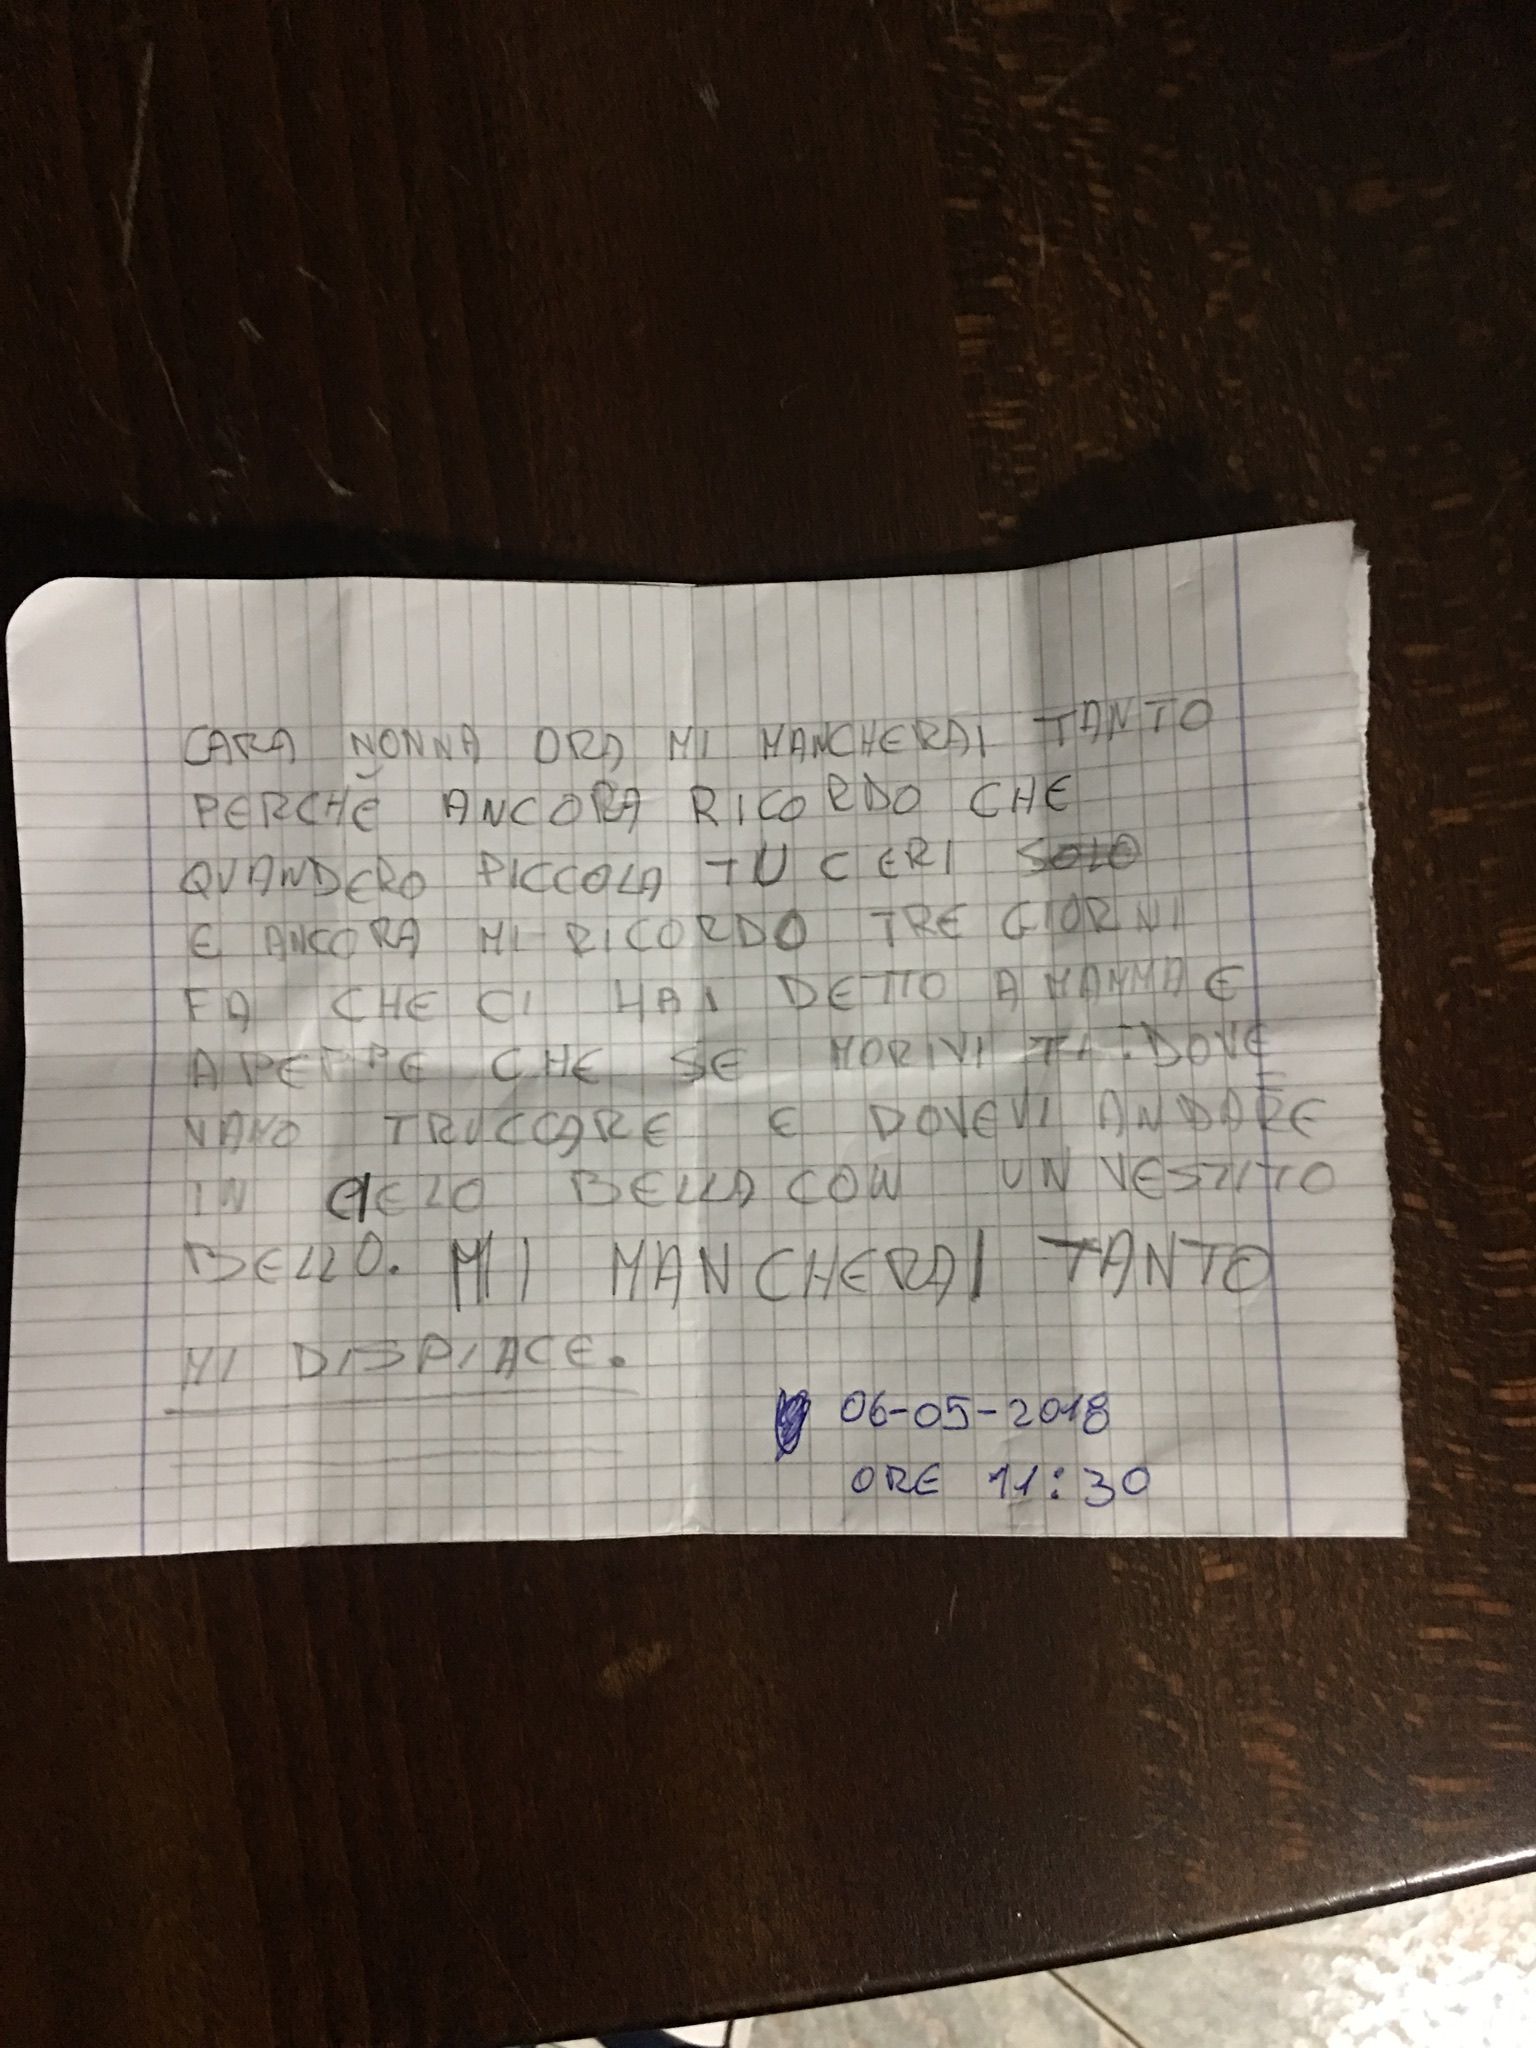 CARA NONNA ORA MI MANCHERAI TANTO
PERCHĔ ANCORA RICORDO CHE
QUANDERO PICCOLA TU CERI SOLO
E ANCORA MI RICORDO TRE GIORNI
FA CHE CI HAI DETTO A MAMMA E
A PEPPE CHE SE MORIVI TI DOVE
VANO TRUCCARE E DOVEVI ANDARE
IN CIELO BELLA CON UN VESTITO
BELLO. MI MANCHERAI TANTO
MI DISPIACE.
06-05-2018
ORE 11:30